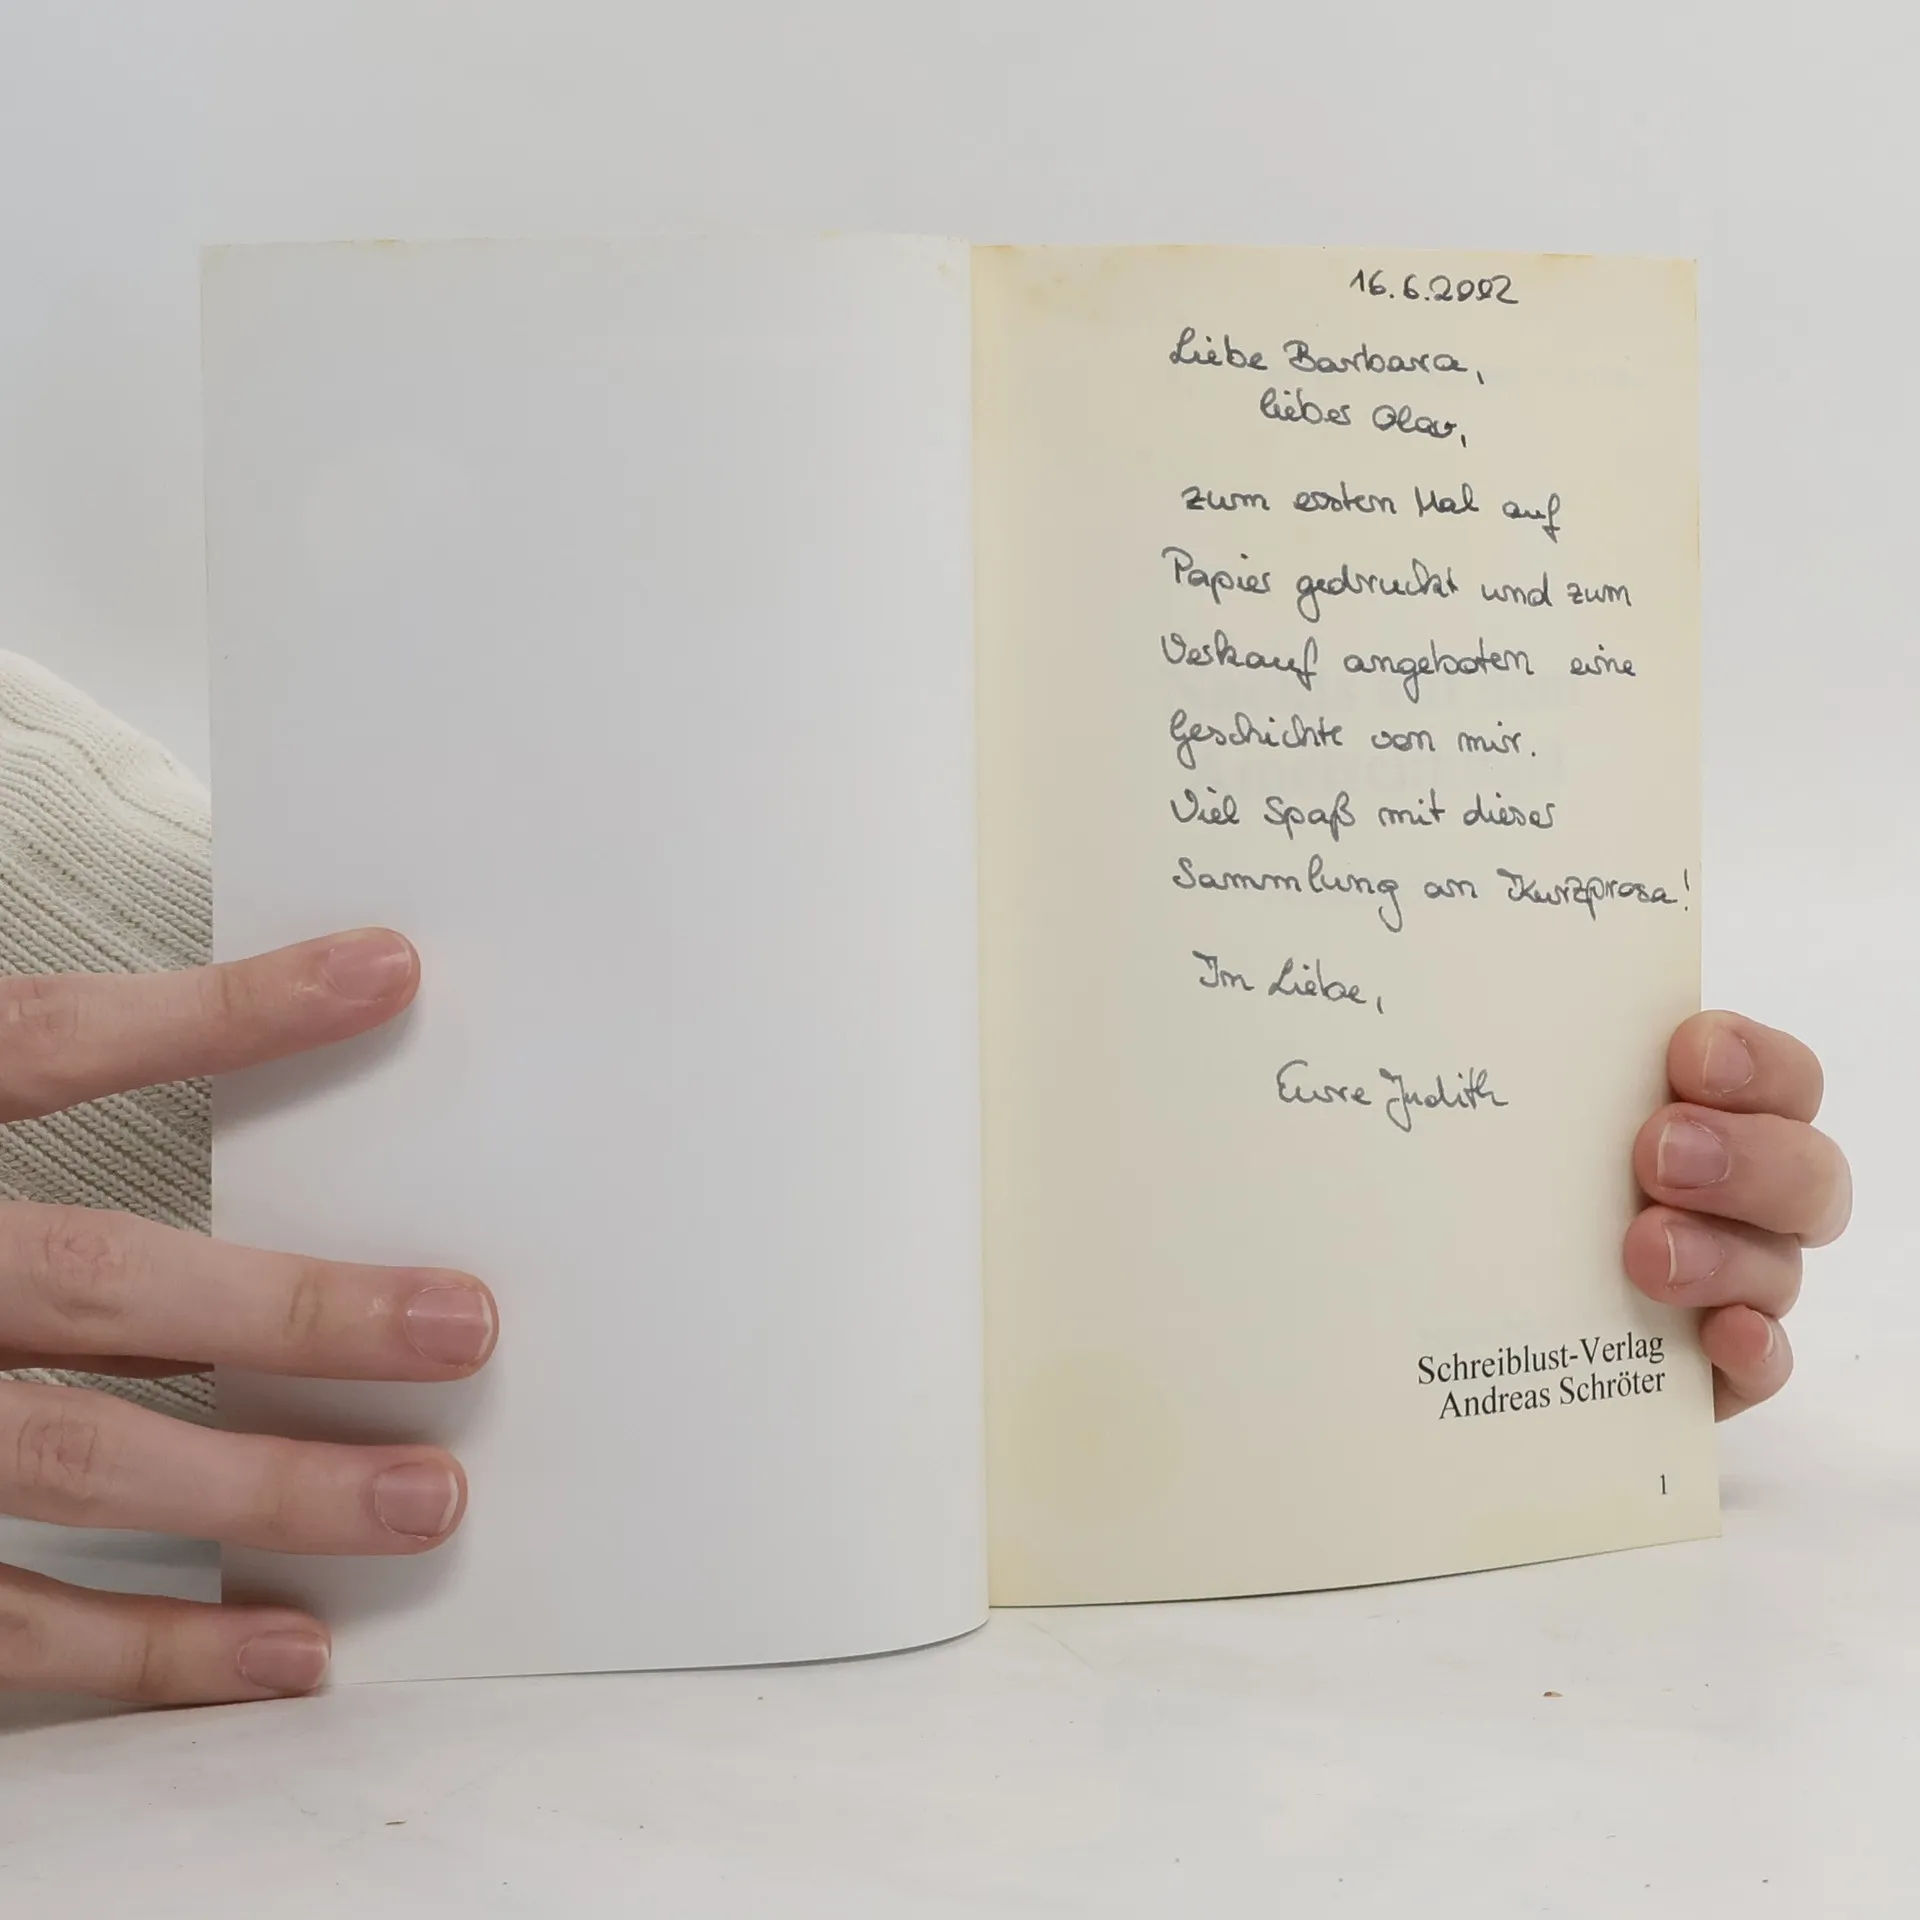 16.6.2002
Liebe Barbara,
lieber Olav,
zum ersten Mal auf
Papier gedruckt und zum
Verkauf angeboten eine
Geschichte von mir.
Viel Spaß mit dieser
Sammlung an Kurzprosa!
In Liebe,
Eure Judith
Schreiblust-Verlag
Andreas Schröter
1